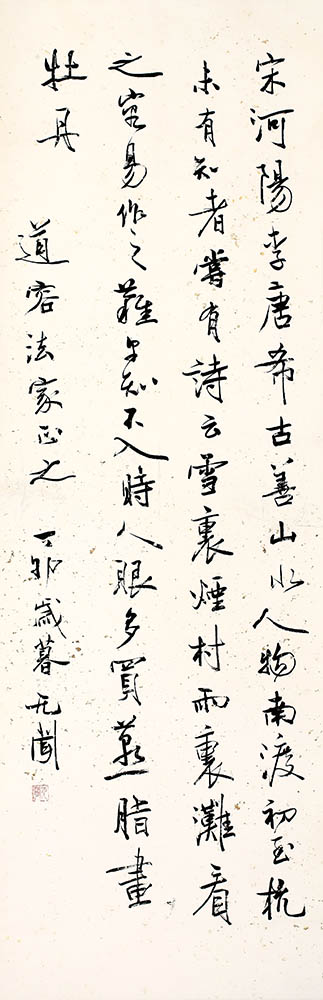 宋河陽李唐希古善山水人物南渡初至杭
未有知者嘗有詩云雪裏煙村雨裏灘看
之容易作之難早知不入時人眼多買燕脂畫
牡丹
道容法家正之
丁卯歲暮無聞